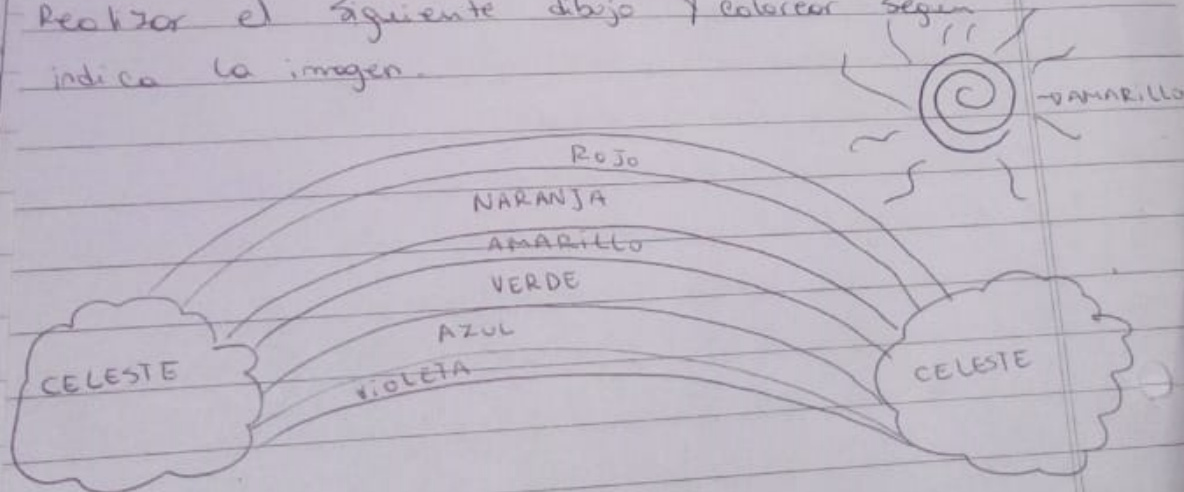 Realizar el siguiente dibujo y colorear segun
indica la imagen.
AMARILLO
ROJO
NARANJA
AMARILLO
VERDE
AZUL
VIOLETA
CELESTE
CELESTE